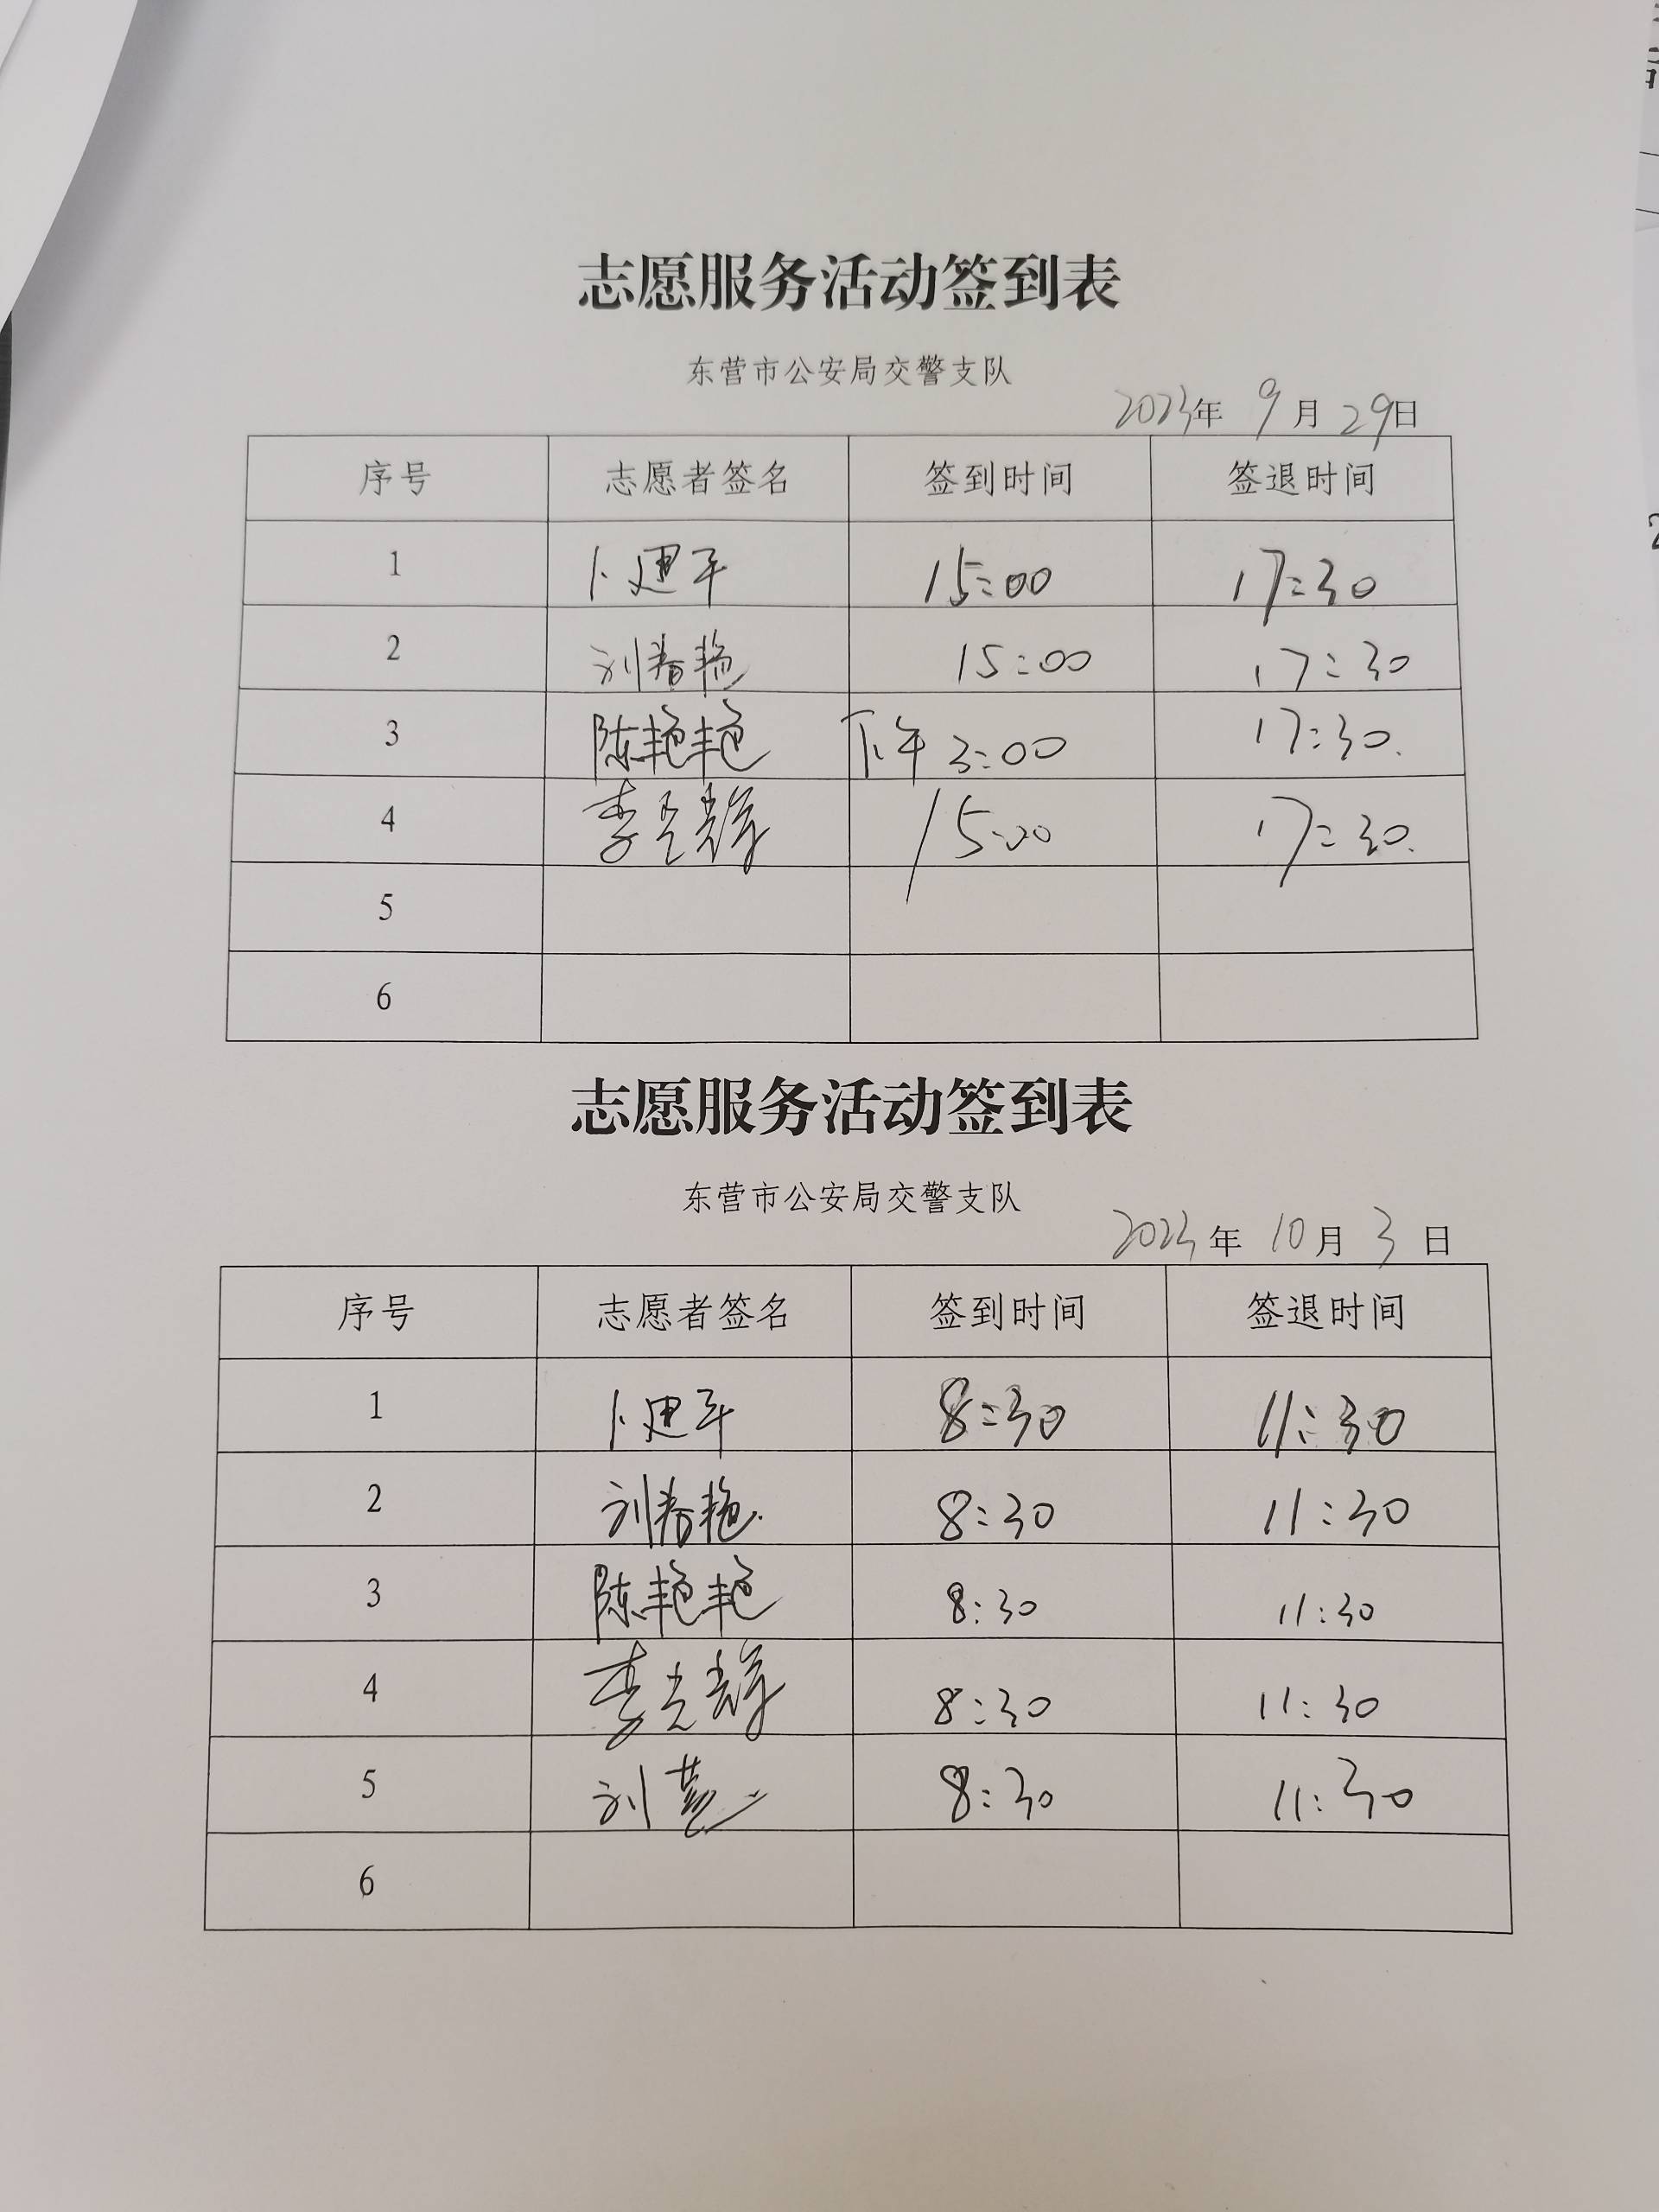 志愿服务活动签到表
东营市公安局交警支队
2023年 9月 29日
序号 志愿者签名 签到时间 签退时间
1 卜建军 15:00 17:30
2 刘春艳 15:00 17:30
3 陈艳艳 下午 3:00 17:30.
4 李光辉 15:00 17:30.
5
6
志愿服务活动签到表
东营市公安局交警支队
2023年 10月 3日
序号 志愿者签名 签到时间 签退时间
1 卜建军 8:30 11:30
2 刘春艳. 8:30 11:30
3 陈艳艳 8:30 11:30
4 李光辉 8:30 11:30
5 刘 8:30 11:30
6